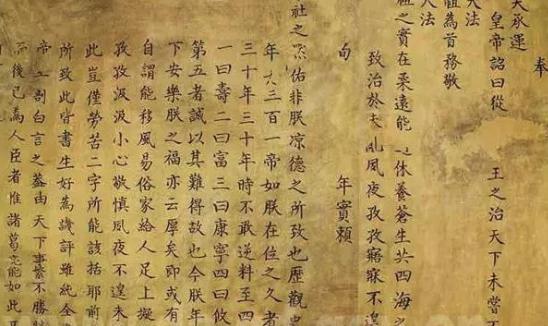 奉
天承運
皇帝詔曰從 王之治天下未嘗不
天法
祖為首務敬
天法
祖之實在柔遠能 之休養蒼生共四海之
致治於未 夙夜孜孜寤寐不遑
旬 年實賴
社之 佑非朕涼德之所致也歷觀史
年 三百一帝如朕在位之久者
三十年三十年時不敢逆料至四
一曰壽二曰富三曰康寧四曰攸
第五者誠以其難得故也今朕年
下安樂朕之福亦云厚矣即或有
自謂能移風易俗家給人足上擬
孜孜汲汲小心敬慎夙夜不遑未
此豈僅勞苦二字所能該括耶前
所致此皆書生好為譏評雖純全
帝 剖白言之蓋由天下事繁不勝
而後已為人臣者惟諸葛亮能如此